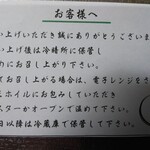 お客様へ
い上げいただき誠にありがとうございま
い上げ後は冷暗所に保管し
めにお召し上がり下さい。
てお召し上がる場合は、電子レンジをさ
ミホイルにお包みしていただき
スターかオーブンで温めて下さい。
日以降は冷蔵庫で保管して下さい。